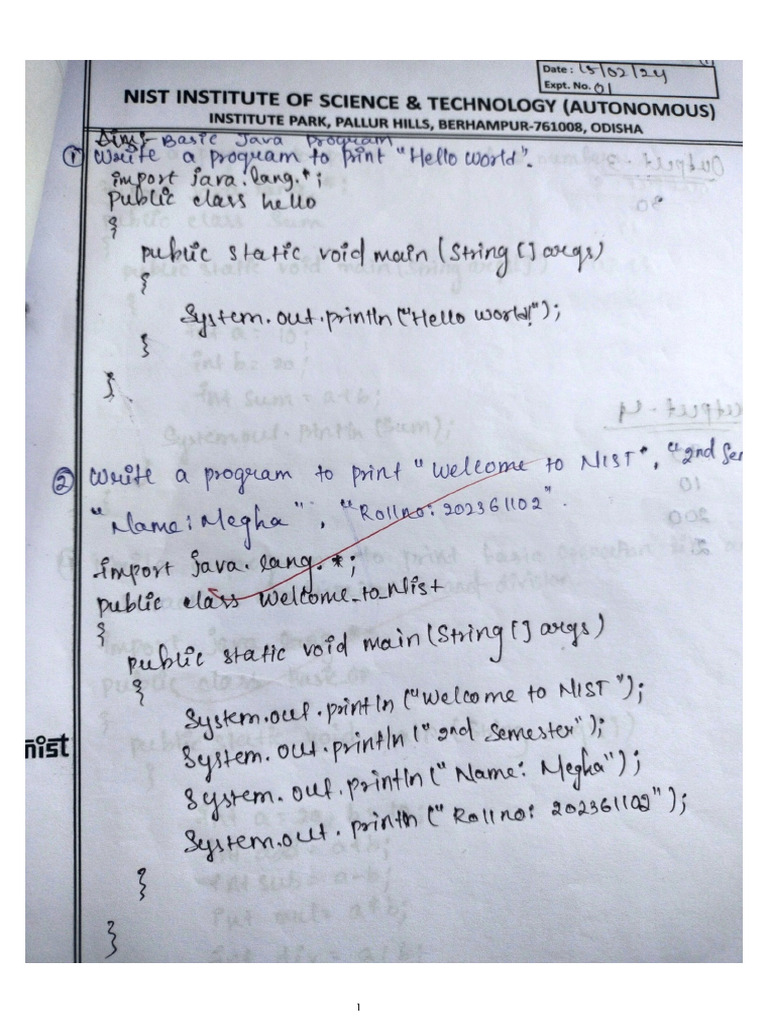 Date: 15/02/24
Expt. No. 01
NIST INSTITUTE OF SCIENCE & TECHNOLOGY (AUTONOMOUS)
INSTITUTE PARK, PALLUR HILLS, BERHAMPUR-761008, ODISHA
Aim:- Basic Java Program
① Write a program to print "Hello World".
import java.lang.*;
public class hello
{
public static void main (String [] args)
{
System.out.println ("Hello World!");
}
}
② Write a program to print "Welcome to NIST", "2nd Sem
"Name: Megha", "Roll no: 202361102".
import java.lang.*;
public class Welcome_to_Nist
{
public static void main (String [] args)
{
System.out.println ("Welcome to NIST");
System.out.println ("2nd Semester");
System.out.println ("Name: Megha");
System.out.println ("Roll no: 202361102");
}
}
nist
1